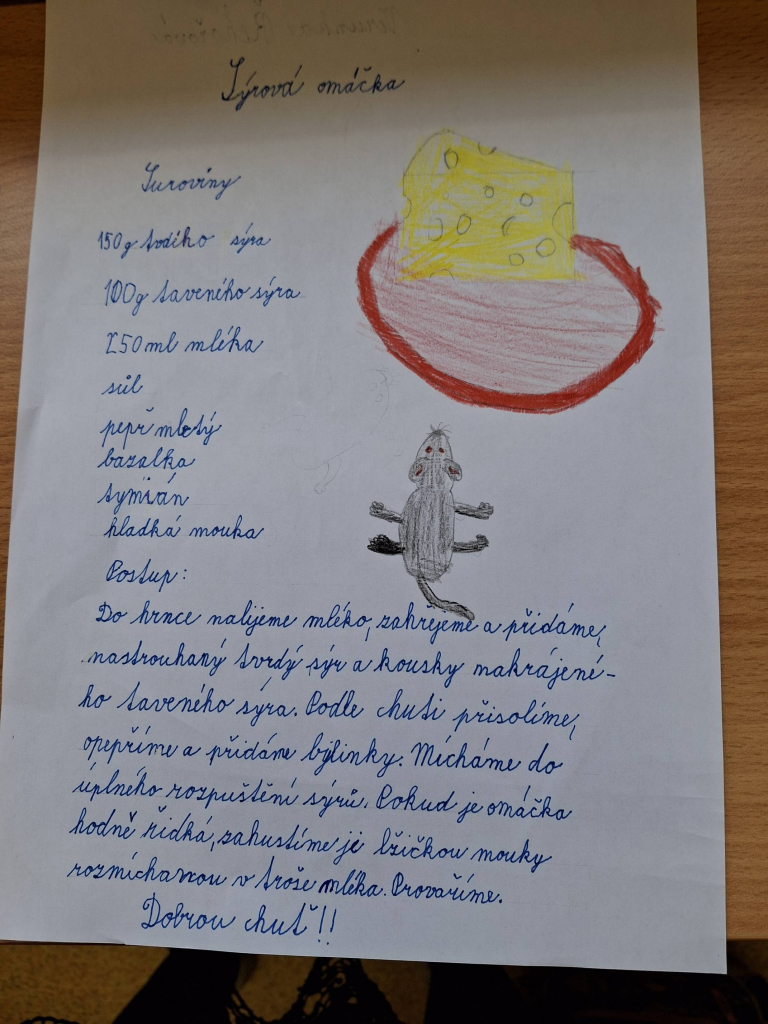 Sýrová omáčka
Suroviny
150g tvdého sýra
100g taveného sýra
250ml mléka
sůl
pepř mletý
bazalka
tymián
hladká mouka
Postup:
Do hrnce nalijeme mléko, zahřejeme a přidáme,
nastrouhaný tvrdý sýr a kousky nakrájené-
ho taveného sýra. Podle chuti přisolíme,
opepříme a přidáme bylinky. Mícháme do
úplného rozpuštění sýrů. Pokud je omáčka
hodně řidká, zahustíme ji lžičkou mouky
rozmíchanou v troše mléka. Provaříme.
Dobrou chuť!!